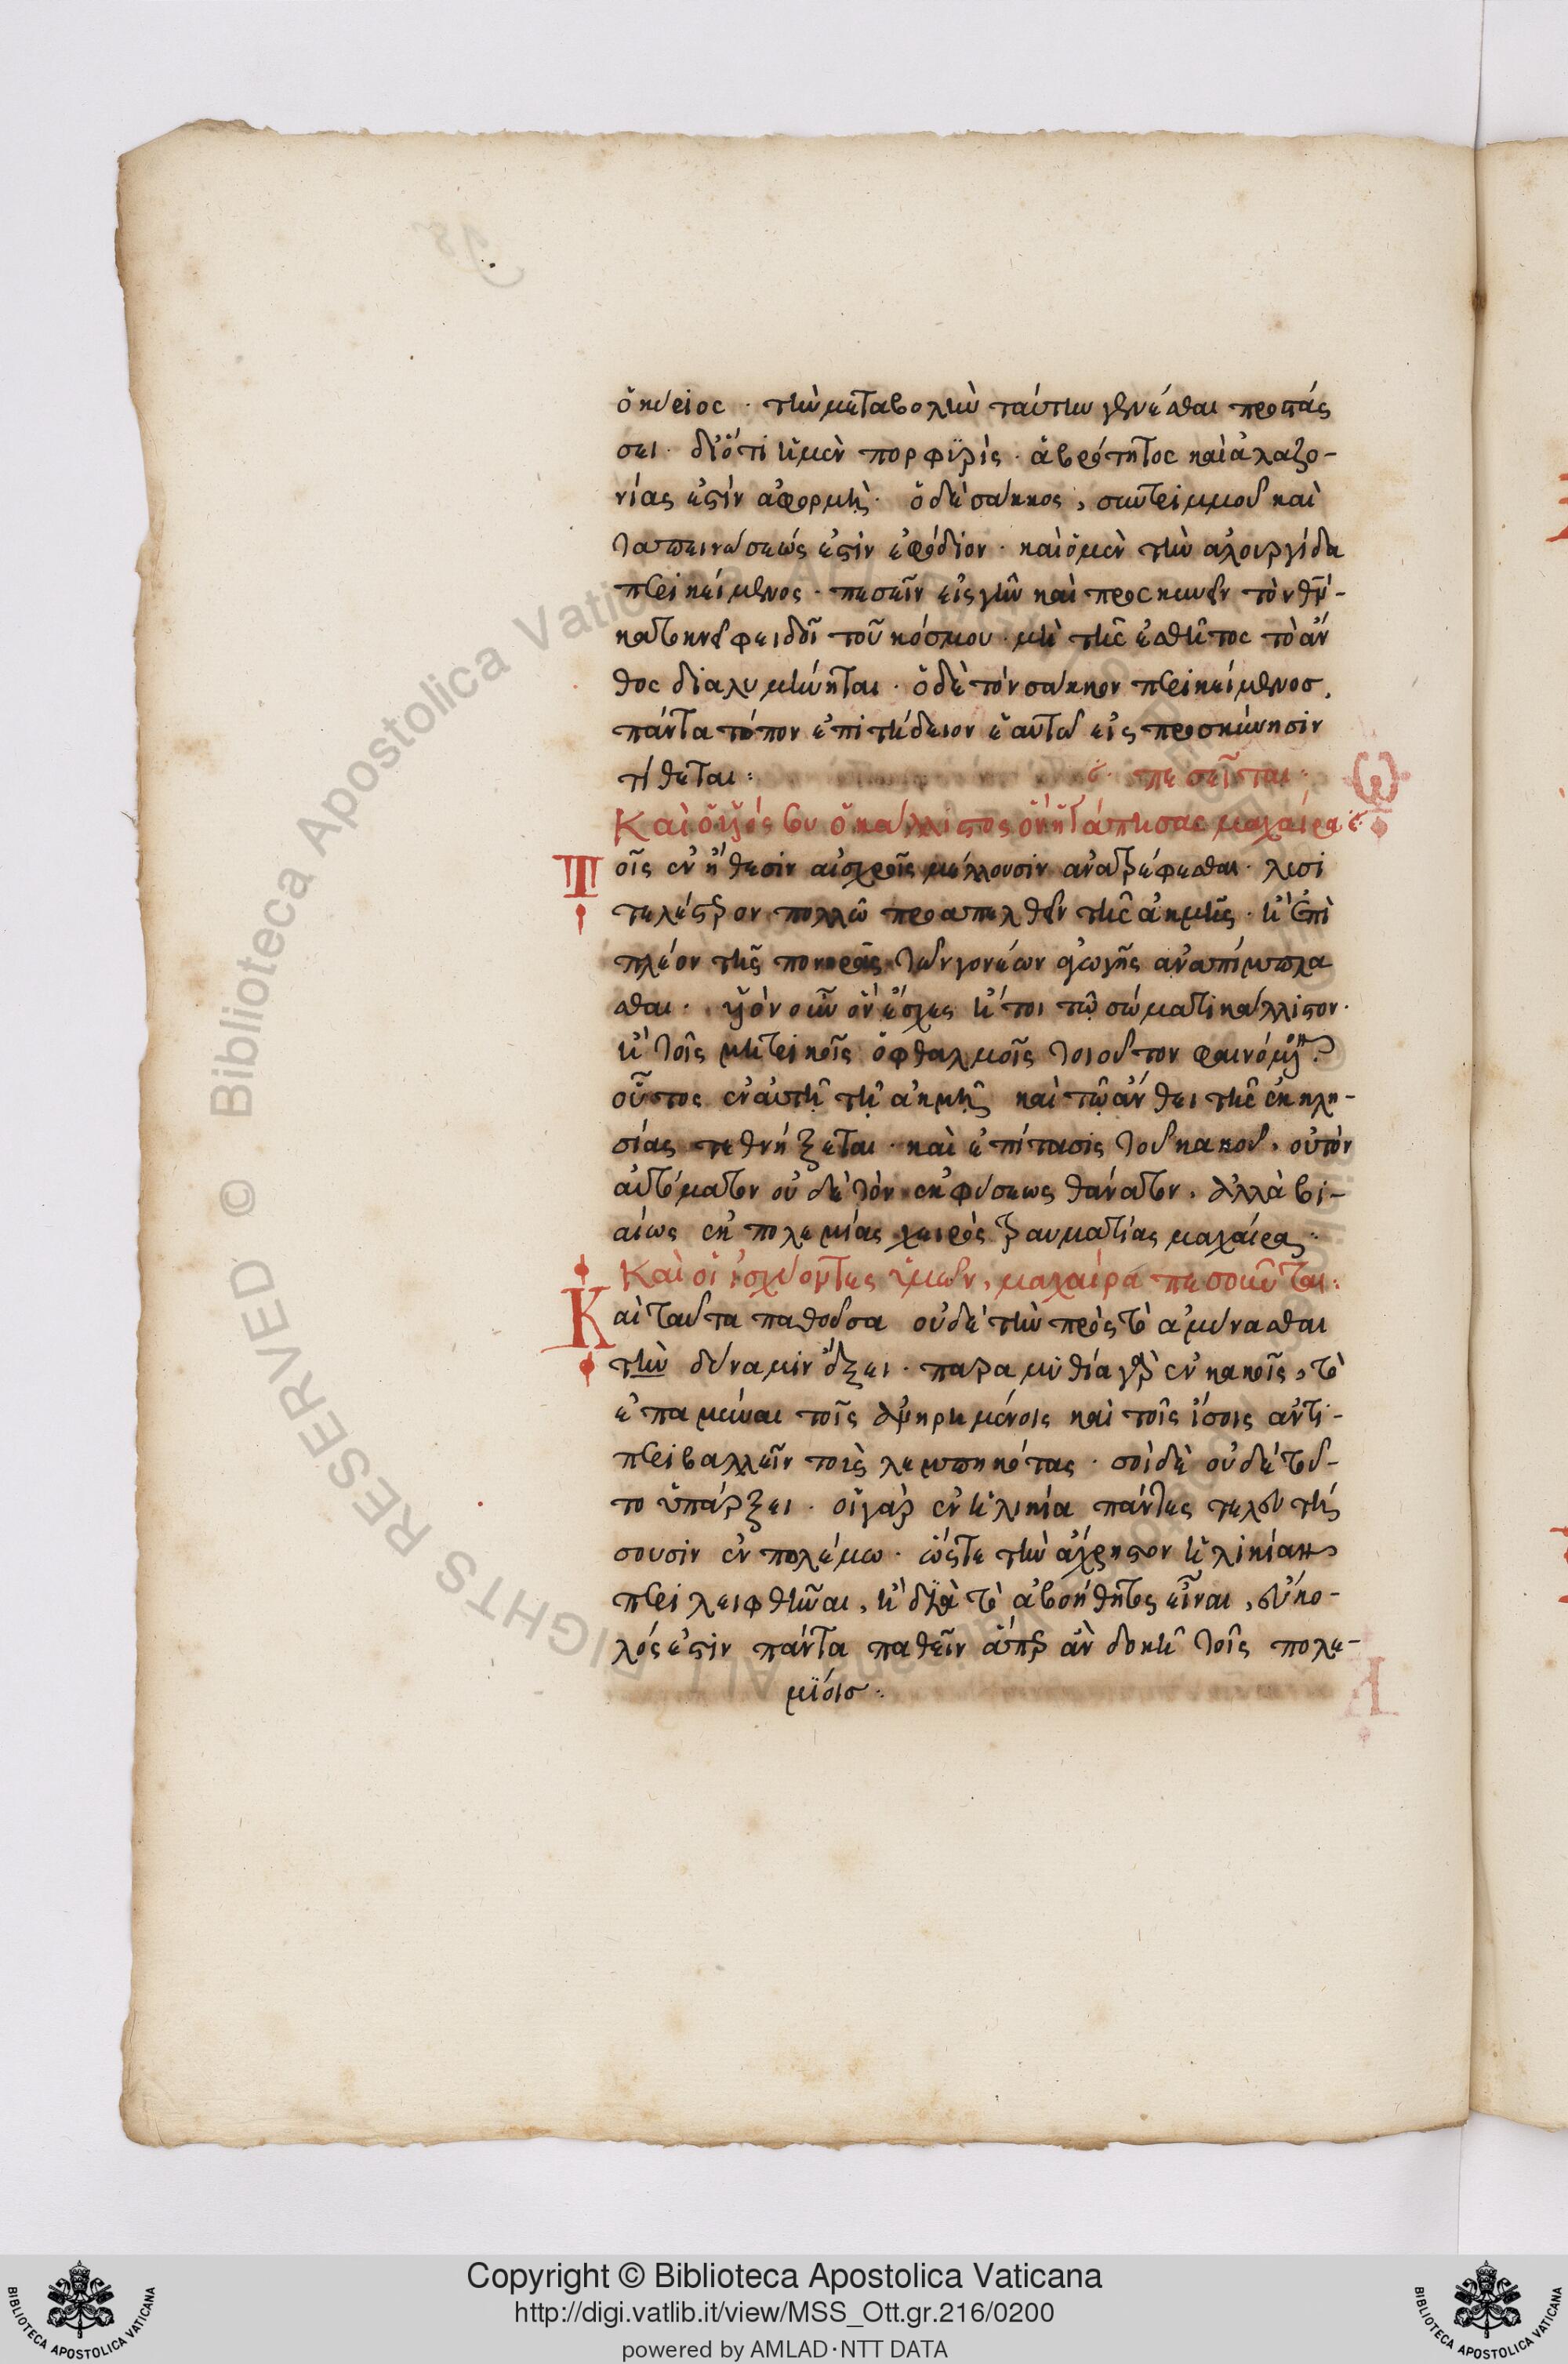 ὁ κύριος · τὴν μεταβολὴν ταύτην γενέσθαι προστάσ
σει · διότι ἡ μὲν πορφυρὶς · ἁβρότητος καὶ ἀλαζο-
νίας ἐστὶν ἀφορμή · ὁ δὲ σάκκος, συντριμμοῦ καὶ
ταπεινώσεώς ἐστιν ἐφόδιον · καὶ ὁ μὲν τὴν ἁλουργίδα
περικείμενος · πεσεῖν εἰς γῆν καὶ προσκυνεῖν τὸν
φειδοῖ τοῦ κόσμου · μὴ τῆς ἐσθῆτος τὸ ἄν
θος διαλυμήνηται · ὁ δὲ τὸν σάκκον περικείμενος,
πάντα τόπον ἐπιτήδειον ἑαυτῷ εἰς προσκύνησιν
τίθεται : πεσεῖται ·
Καὶ ὁ υἱός σου ὁ κάλλιστος ὃν ἠγάπησας μαχαίρα
Τοῖς ἐν ἤθεσιν αἰσχροῖς μέλλουσιν ἀνατρέφεσθαι · λυσι
τελέστερον πολλῷ προαπελθεῖν τῆς ἀκμῆς · ἢ ἐπὶ
πλέον τῆς πονηρᾶς τῶν γονέων ἀγωγῆς ἀναπίμπλα
σθαι · υἱὸν οὖν ὃν ἔσχες ἤτοι τῷ σώματι κάλλιστον ·
ἢ τοῖς μητρικοῖς ὀφθαλμοῖς τοιοῦτον φαινόμενον
οὗτος ἐν αὐτῇ τῇ ἀκμῇ καὶ τῷ ἄνθει τῆς ἐκκλη-
σίας τεθνήξεται · καὶ ἐπίτασις τοῦ κακοῦ, οὐ τὸν
αὐτόματον οὐδὲ τὸν ἐκ φύσεως θάνατον, ἀλλὰ βι-
αίως ἐκ πολεμίας χειρὸς τραυματίας μαχαίρας ·
Καὶ οἱ ἰσχύοντες ὑμῶν, μαχαίρα πεσοῦνται :
Καὶ ταῦτα παθοῦσα οὐδὲ τὴν πρὸς τὸ ἀμύνασθαι
τὴν δύναμιν ἕξει · παραμυθία γὰρ ἐν κακοῖς, τὸ
ἐπαμῦναι τοῖς ἀνῃρημένοις καὶ τοῖς ἴσοις ἀντι-
περιβαλλεῖν τοὺς λελυπηκότας · σοὶ δὲ οὐδὲ τοῦ-
το ὑπάρξει · οἱ γὰρ ἐν ἡλικία πάντες τελευτή
σουσιν ἐν πολέμω · ὥστε τὴν ἄχρηστον ἡλικίαν
περιλειφθῆναι, ἢ διὰ τὸ ἀβοήθητος εἶναι, εὔκο-
λός ἐστιν πάντα παθεῖν ἅπερ ἂν δοκῇ τοῖς πολε-
μίοις ·
Copyright © Biblioteca Apostolica Vaticana
http://digi.vatlib.it/view/MSS_Ott.gr.216/0200
powered by AMLAD·NTT DATA
BIBLIOTECA APOSTOLICA VATICANA
BIBLIOTECA APOSTOLICA VATICANA